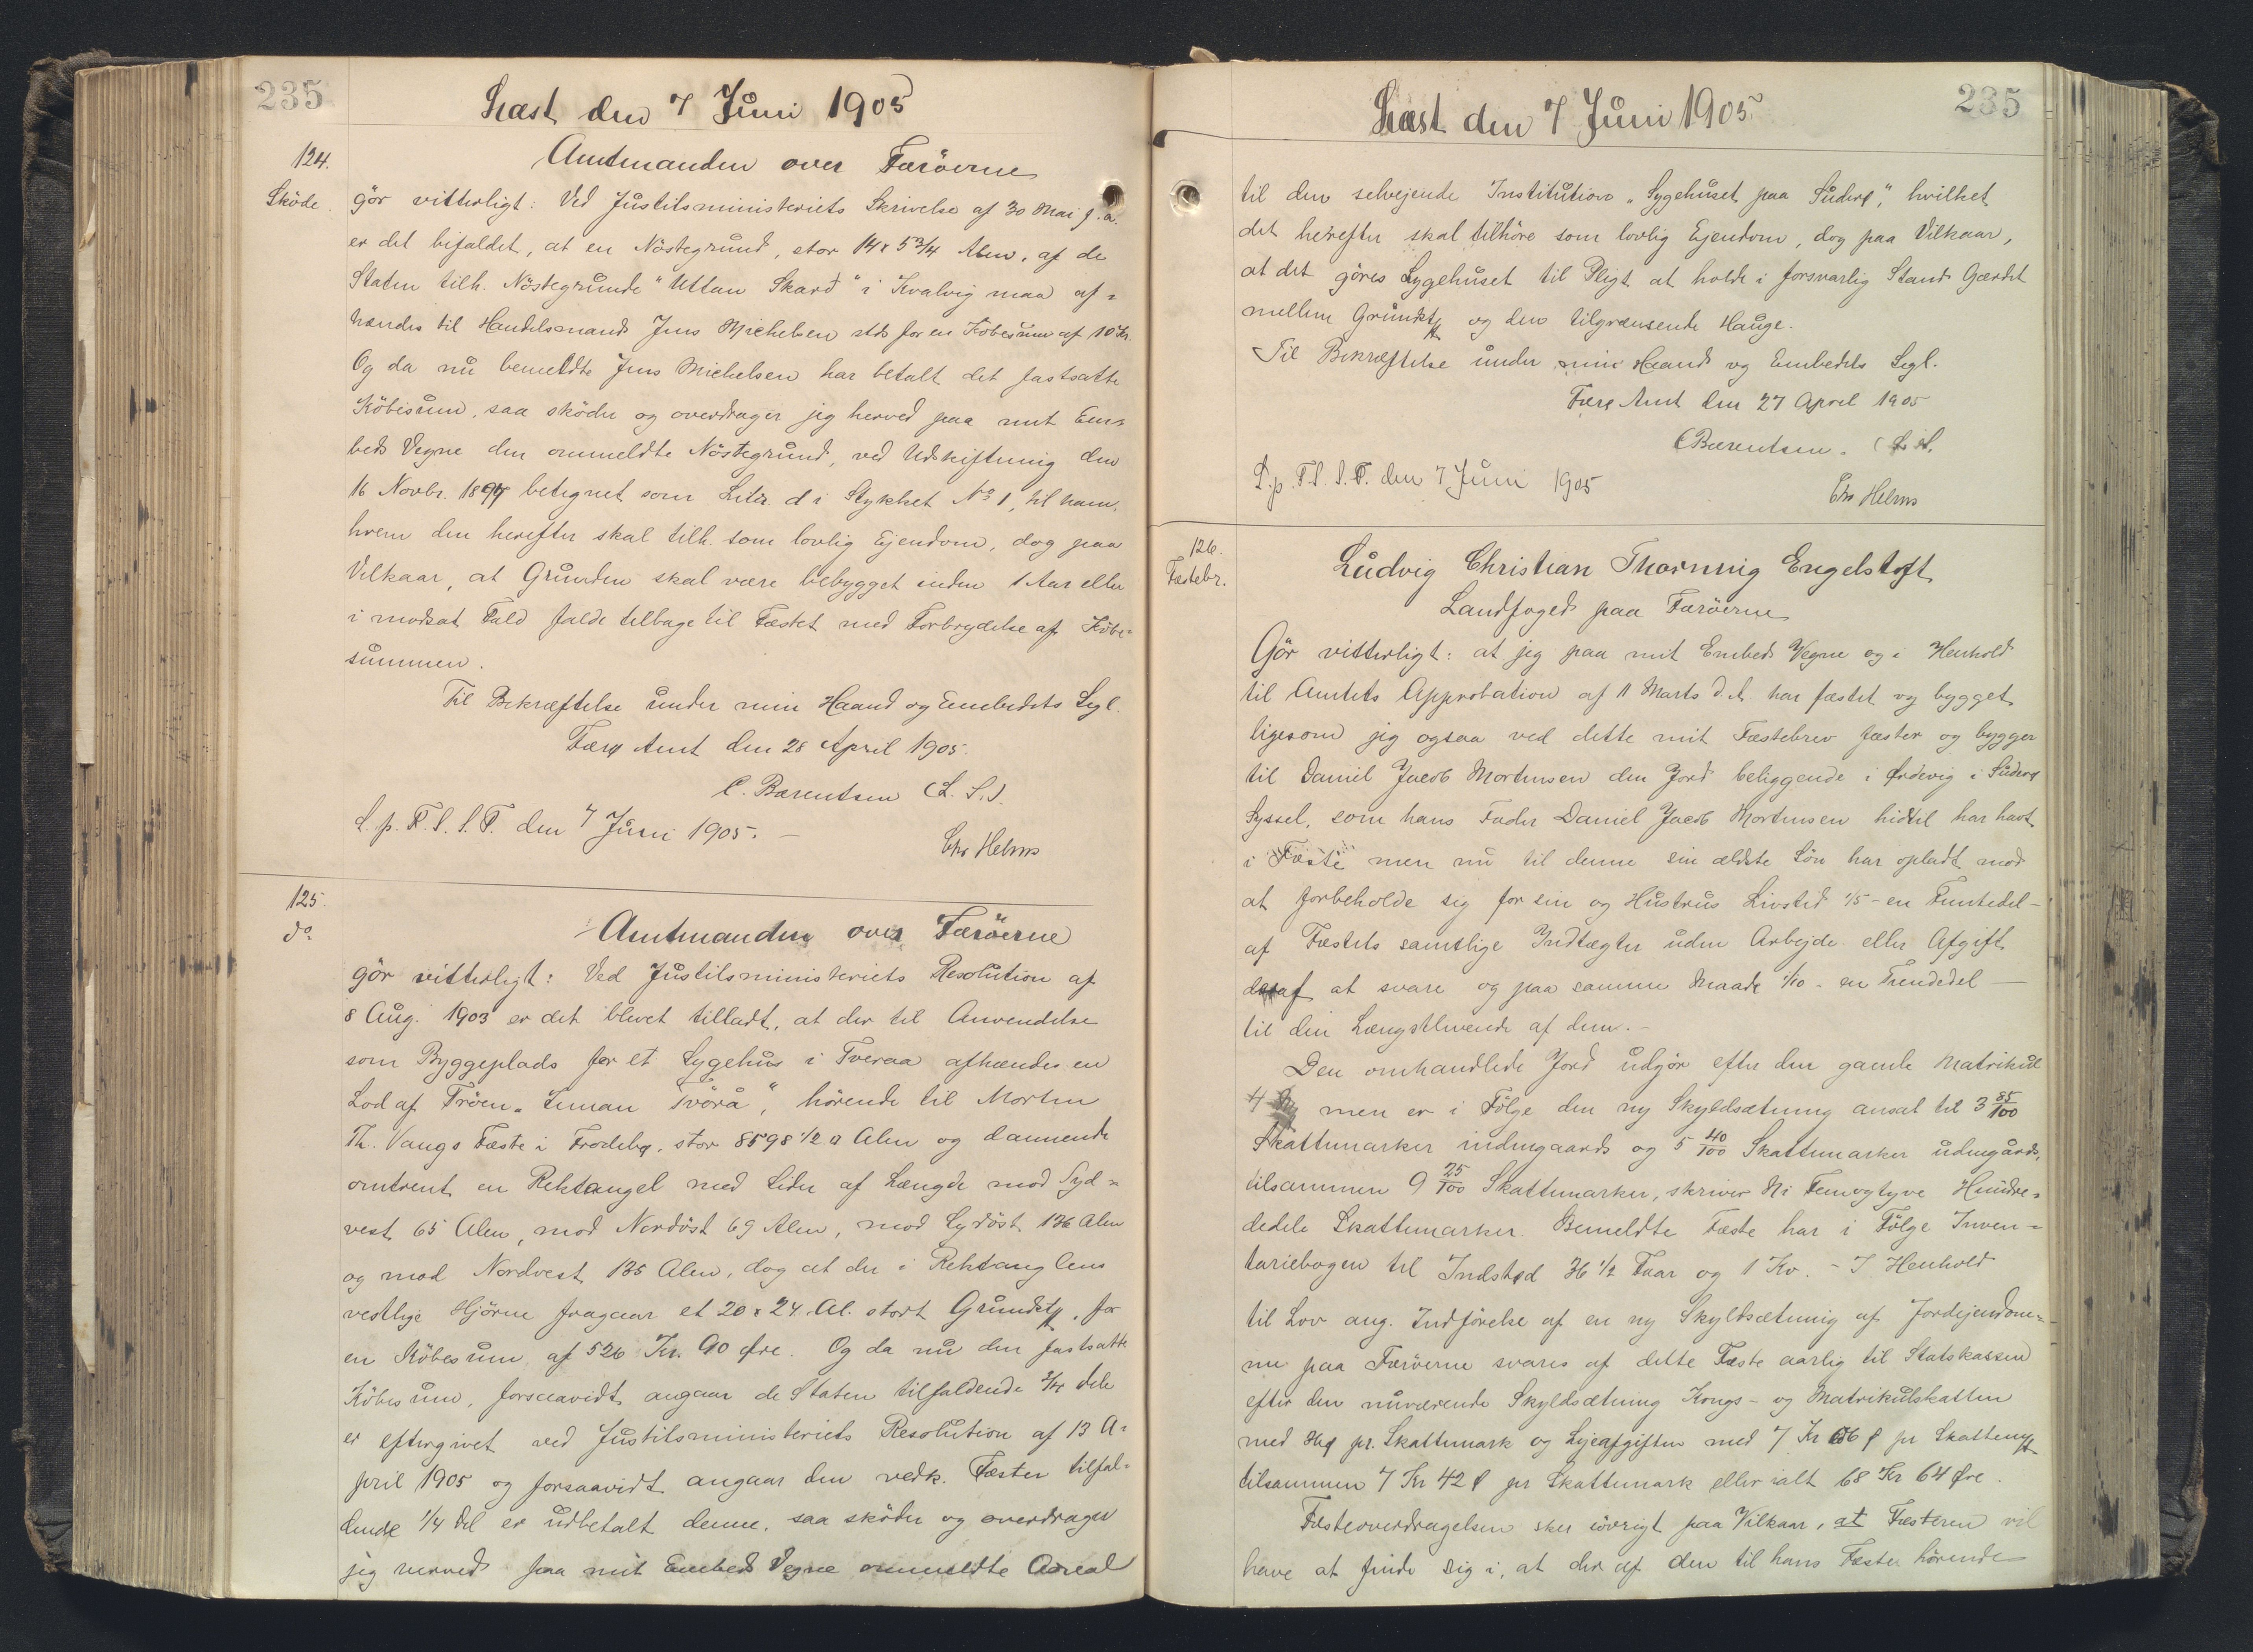 235
Læst den 7 Juni 1905
124.
Sköde.
Amtmanden over Færöerne
gör vitterligt: Ved Justitsministeriets Skrivelse af 30 Mai f. a.
er det bifaldet, at en Nöstegrund, stor 14 x 5 3/4 Alen, af de
Staten tilh. Nöstegrunde "Uttan Skard" i Kvalvig maa af=
hændes til Handelsmand Jens Michelsen sstds for en Köbesum af 10 Kr.
Og da nu bemeldte Jens Michelsen har betalt det fastsatte
Köbesum, saa sköder og overdrager jeg herved paa mit Em=
beds Vegne den ommeldte Nöstegrund, ved Udskiftning den
16 Novbr. 1897 betegnet som Litr. d i Stykket No 1, til ham,
hvem den herefter skal tilh. som lovlig Ejendom, dog paa
Vilkaar, at Grunden skal være bebygget inden 1 Aar eller
i modsat Fald falde tilbage til Fæstet med Forbrydelse af Köbe=
summen.
Til Bekræftelse under min Haand og Embedets Segl.
Færø Amt den 28 April 1905.
C. Bærentsen (L. S.).
L. p. F. S. S. T. den 7 Juni 1905. –
Chr Helms
125.
do
Amtmanden over Færöerne
gör vitterligt: Ved Justitsministeriets Resolution af
8 Aug. 1903 er det blevet tilladt, at der til Anvendelse
som Byggeplads for et Sygehus i Tveraa afhændes en
Lod af Tröen "Innan Tvörå", hörende til Morten
Th. Vangs Fæste i Frodebø, stor 8598 1/2 □ Alen og dannende
omtrent en Rektangel med Sider af Længde mod Syd=
vest 65 Alen, mod Nordöst 69 Alen, mod Sydöst 136 Alen
og mod Nordvest 135 Alen, dog at der i Rektanglens
vestlige Hjörne fragaar et 20 x 24 Al. stort Grundst., for
en Köbesum af 526 Kr. 90 Øre. Og da nu den fastsatte
Köbesum, forsaavidt angaar de Staten tilfaldende 3/4 dele
er eftergivet ved Justitsministeriets Resolution af 13 A=
pril 1905 og forsaavidt angaar den vedk. Fæster tilfal=
dende 1/4 Del er udbetalt denne, saa sköder og overdrager
jeg herved paa mit Embeds Vegne ommeldte Areal
Læst den 7 Juni 1905.
235
til den selvejende Institution "Sygehuset paa Suderø", hvilket
det herefter skal tilhöre som lovlig Ejendom, dog paa Vilkaar,
at det göres Sygehuset til Pligt at holde i forsvarlig Stand Gærdet
mellem Grundst. og den tilgrænsende Hauge.
Til Bekræftelse under min Haand og Embedets Segl.
Færø Amt den 27 April 1905
C Bærentsen. (L. S.
L. p. F. S. S. T. den 7 Juni 1905
Chr Helms
126.
Fæstebr.
Ludvig Christian Thorning Engelstoft
Landfoged paa Færöerne
Gör vitterligt: at jeg paa mit Embeds Vegne og i Henhold
til Amtets Approbation af 11 Marts d. A. har fæstet og bygget
ligesom jeg ogsaa ved dette mit Fæstebrev fæster og bygger
til Daniel Jacob Mortensen den Jord beliggende i Ørdevig i Suderø
Syssel, som hans Fader Daniel Jacob Mortensen hidtil har havt
i Fæste men nu til denne sin ældste Sön har opladt mod
at forbeholde sig for sin og Hustrus Livstid 1/5 - en Femtedel -
af Fæstets samtlige Indtægter uden Arbejde eller Afgift
deraf at svare og paa samme Maade 1/10 - en Tiendedel —
til den Længstlevende af dem. –
Den omhandlede Jord udgör efter den gamle Matrikul
4 men er i Fölge den ny Skyldsætning ansat til 3 85/100
Skattemarker indengaards og 5 40/100 Skattemarker udengårds,
tilsammen 9 25/100 Skattemarker, skriver Ni Femogtyve Hundre=
dedele Skattemarker. Bemeldte Fæste har i Fölge Inven=
tariebogen til Indsted 36 1/2 Faar og 1 Ko. – I Henhold
til Lov ang. Indförelse af en ny Skyldsætning af Jordejendom=
me paa Færöerne svares af dette Fæste aarlig til Statskassen
efter den nuværende Skyldsætning Kongs- og Matrikulskatten
med pr. Skattemark og Lejeafgiften med 7 Kr 06 Ø pr Skattem.
tilsammen 7 Kr 42 Ø pr Skattemark eller ialt 68 Kr 64 Øre.
Fæsteoverdragelsen sker iövrigt paa Vilkaar, at Fæsteren vil
have at finde sig i, at der af den til hans Fæste hörende